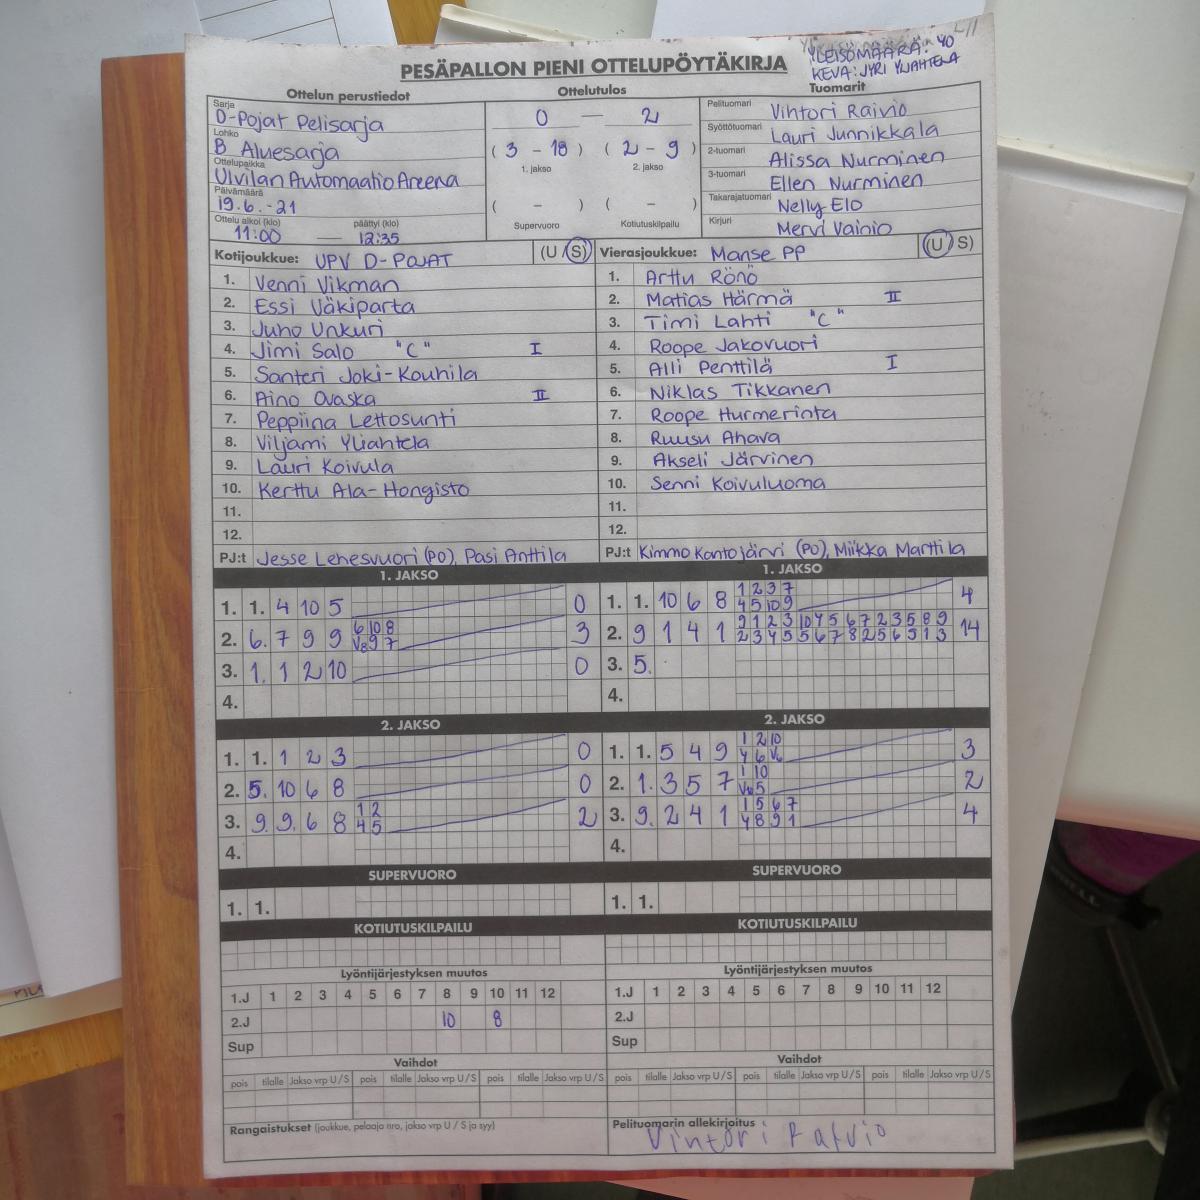 YLEISÖMÄÄRÄ: 40
KEVA: JYRI YLIAHTELA
PESÄPALLON PIENI OTTELUPÖYTÄKIRJA
Ottelun perustiedot
Sarja
D-Pojat Pelisarja
Lohko
B Aluesarja
Ottelupaikka
Ulvilan Automaatio Areena
Päivämäärä
19.6.-21
Ottelu alkoi (klo) päättyi (klo)
11:00 — 12:35
Ottelutulos
0 — 2
( 3 - 18 ) ( 2 - 9 )
1. jakso 2. jakso
( - ) ( - )
Supervuoro Kotiutuskilpailu
Tuomarit
Pelituomari Vihtori Raivio
Syöttötuomari Lauri Junnikkala
2-tuomari Alissa Nurminen
3-tuomari Ellen Nurminen
Takarajatuomari Nelly Elo
Kirjuri Mervi Vainio
Kotijoukkue: UPV D-POJAT (U / S)
1. Venni Vikman
2. Essi Väkiparta
3. Juho Unkuri
4. Jimi Salo "C" I
5. Santeri Joki-Kouhila
6. Aino Ovaska II
7. Peppiina Lettosunti
8. Viljami Yliahtela
9. Lauri Koivula
10. Kerttu Ala-Hongisto
11.
12.
PJ:t Jesse Lehesvuori (PO), Pasi Anttila
Vierasjoukkue: Manse PP (U / S)
1. Arttu Rönö
2. Matias Härmä II
3. Timi Lahti "C"
4. Roope Jakovuori
5. Alli Penttilä I
6. Niklas Tikkanen
7. Roope Hurmerinta
8. Ruusu Ahava
9. Akseli Järvinen
10. Senni Koivuluoma
11.
12.
PJ:t Kimmo Kantojärvi (PO), Miikka Marttila
1. JAKSO
1. 1. 4 10 5 0
2. 6. 7 9 9 6 10 8 3
V8 9 7
3. 1. 1 2 10 0
4.
1. JAKSO
1. 1. 10 6 8 1 2 3 7 4
4 5 10 9
2. 9 1 4 1 9 1 2 3 10 4 5 6 7 2 3 5 8 9 14
2 3 4 5 5 6 7 8 2 5 6 5 1 3
3. 5.
4.
2. JAKSO
1. 1. 1 2 3 0
2. 5. 10 6 8 0
3. 9. 9. 6 8 1 2 2
4 5
4.
2. JAKSO
1. 1. 5 4 9 1 2 10 3
4 6 V6
2. 1. 3 5 7 1 10 2
5
3. 9. 2 4 1 1 5 6 7 4
4 8 9 1
4.
SUPERVUORO
1. 1.
SUPERVUORO
1. 1.
KOTIUTUSKILPAILU
KOTIUTUSKILPAILU
Lyöntijärjestyksen muutos
1.J 1 2 3 4 5 6 7 8 9 10 11 12
2.J 10 8
Sup
Lyöntijärjestyksen muutos
1.J 1 2 3 4 5 6 7 8 9 10 11 12
2.J
Sup
Vaihdot
pois tilalle Jakso vrp U / S pois tilalle Jakso vrp U / S pois tilalle Jakso vrp U / S
Vaihdot
pois tilalle Jakso vrp U / S pois tilalle Jakso vrp U / S pois tilalle Jakso vrp U / S
Rangaistukset (joukkue, pelaaja nro, jakso vrp U / S ja syy)
Pelituomarin allekirjoitus
Vihtori Raivio